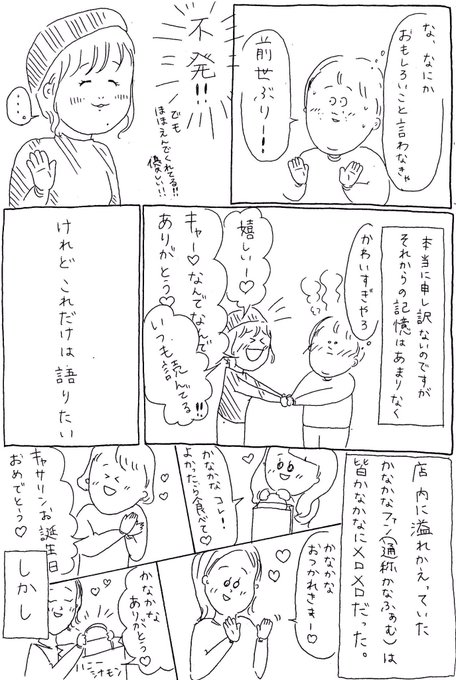 な、なにか
おもしろいこと言わなきゃ
前世ぶりー!
不発!!
でも
ほほえんでくれてる!!
優しい!!
・・・。
本当に申し訳ないのですが
それからの記憶はあまりなく
かわいすぎやろ
嬉しいー♡
キャー♡なんでなんで
ありがとう♡
いつも読んでる!!
けれどこれだけは語りたい
店内に溢れかえっていた
かなかなファン(通称かなふぁむ)は
皆かなかなにメロメロだった。
かなかなコレ!
よかったら食べて♡
かなかな
おつかれさまー♡
キャサリンお誕生日
おめでとう♡
かなかな
ありがとう♡
ハニー
シナモン
しかし